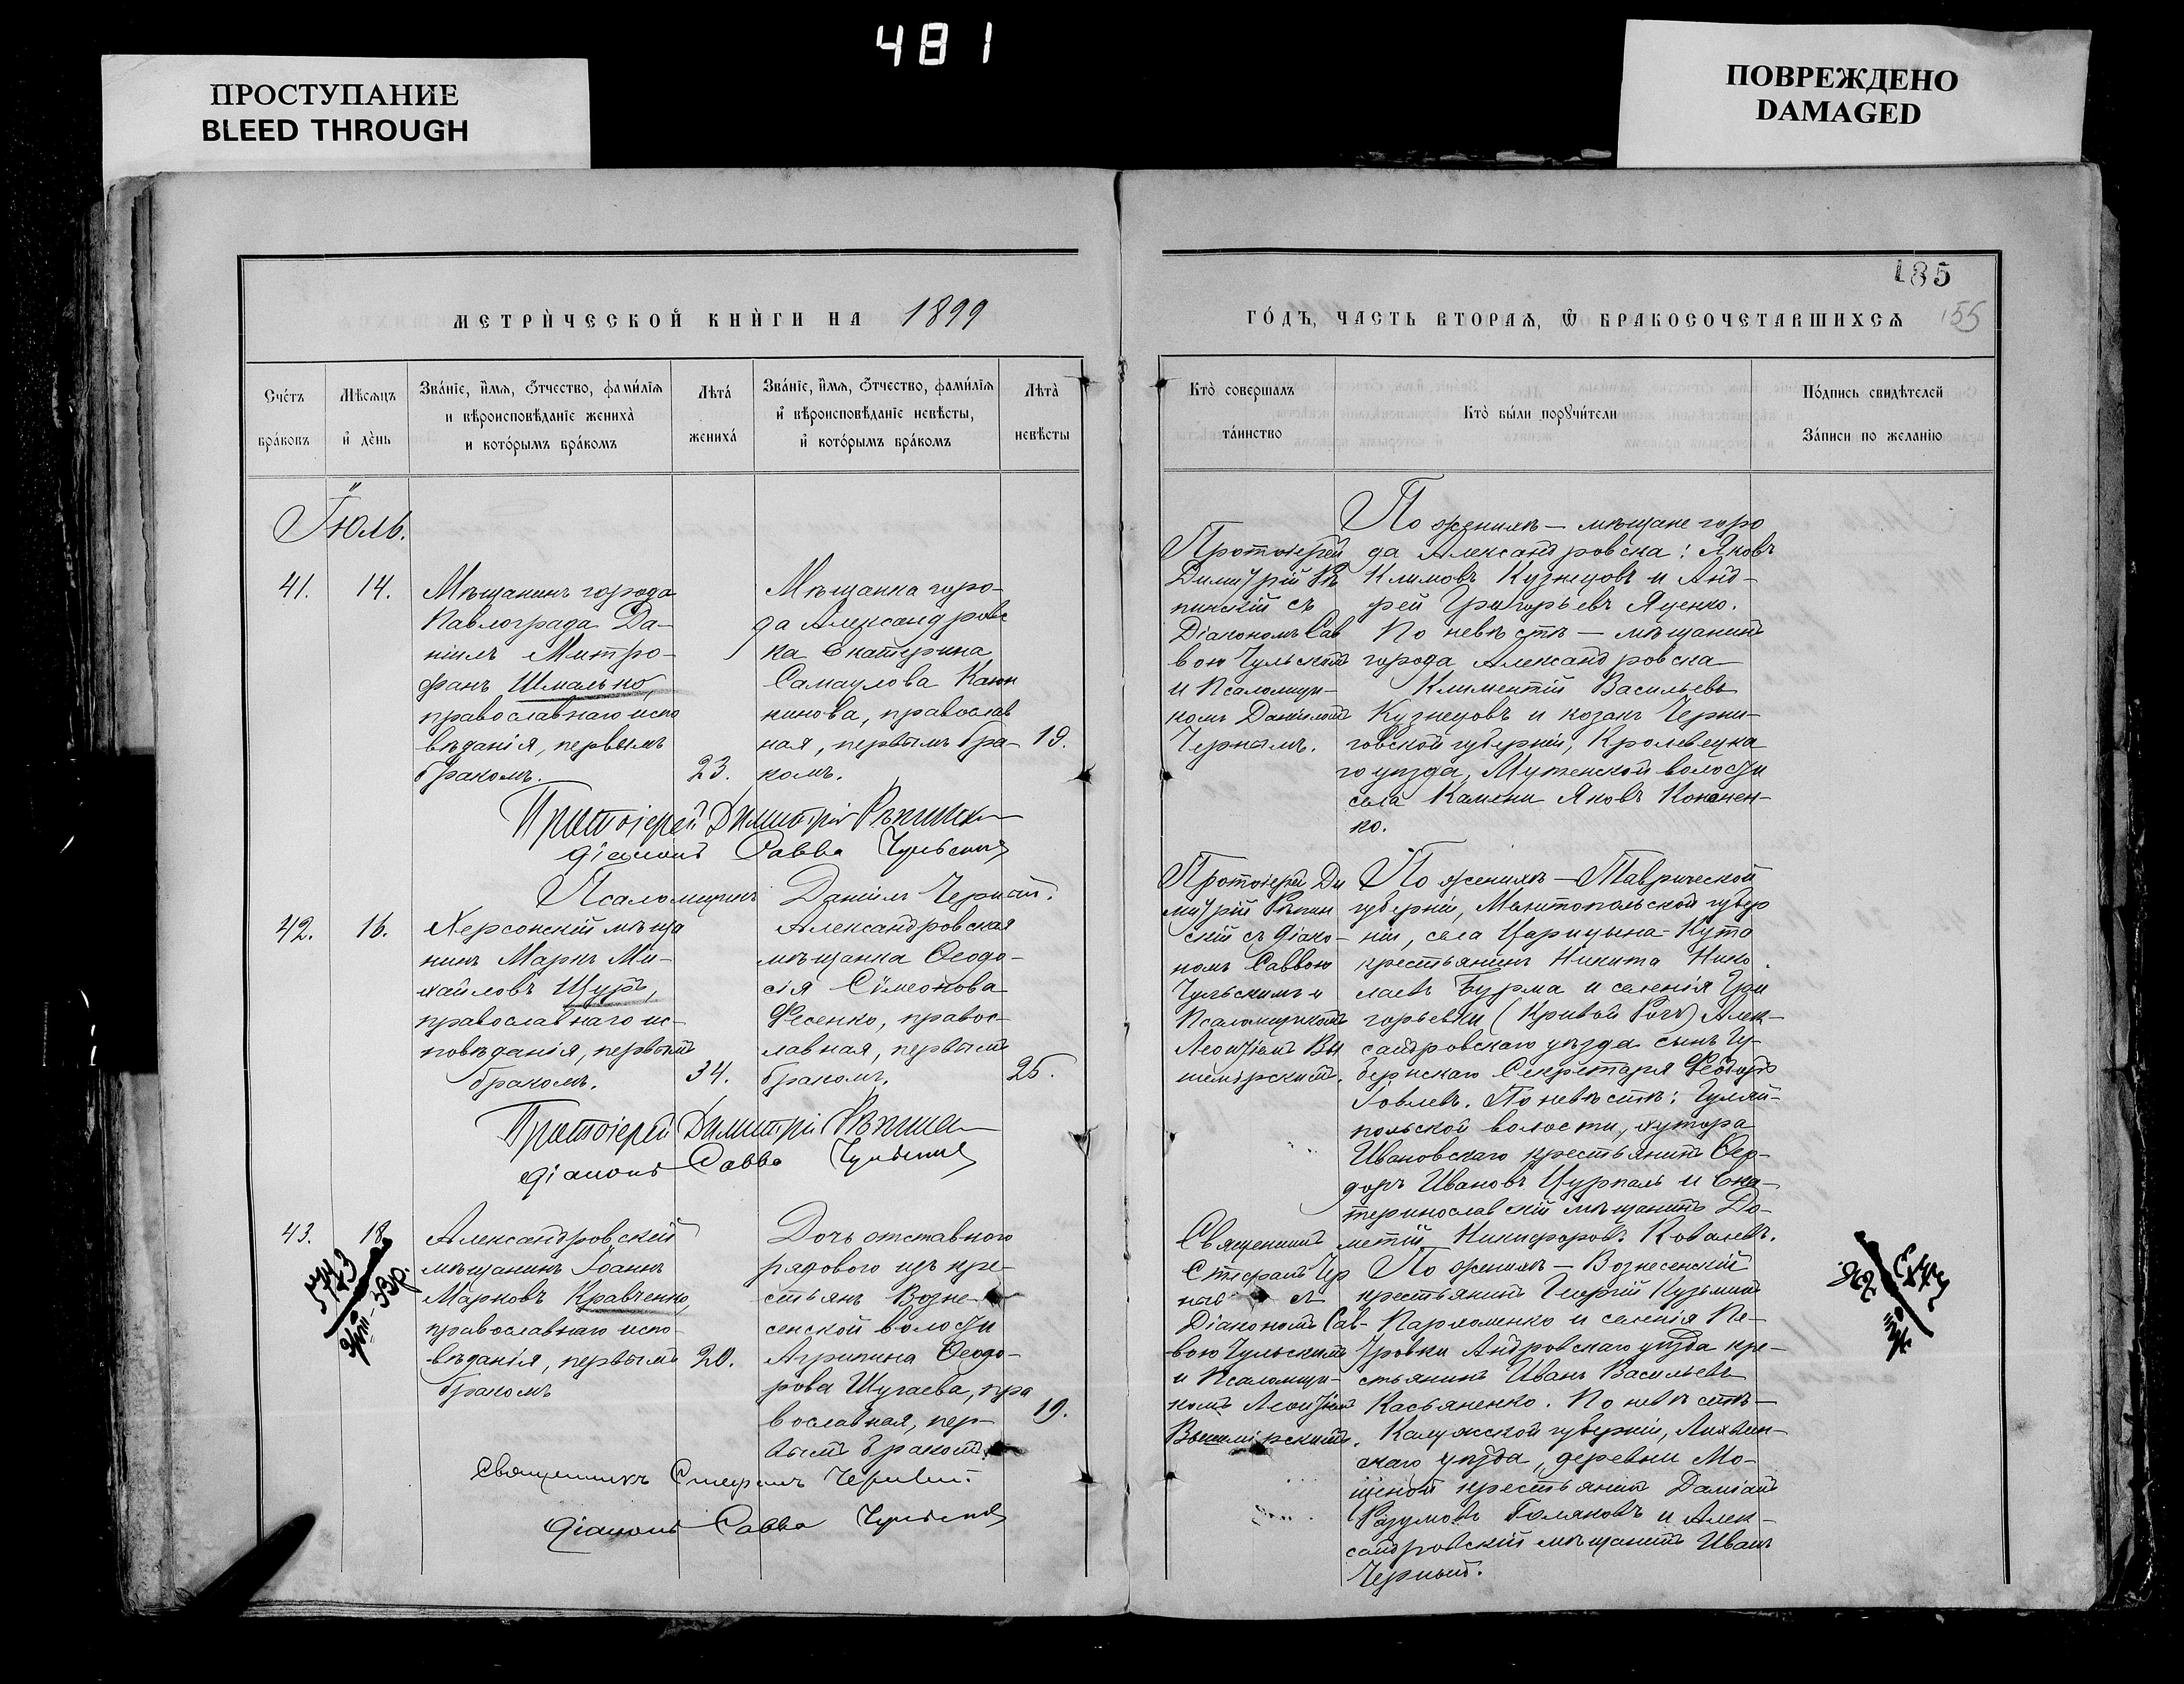 481
ПРОСТУПАНИЕ
BLEED THROUGH
ПОВРЕЖДЕНО
DAMAGED
185
155
МЕТРИ́ЧЕСКОЙ КНИ́ГИ НА 1899
ГО́ДЪ, ЧАСТЬ ВТОРАѦ, Ѽ БРАКОСОЧЕТАВШИХСѦ
Сче́тъ
бра́ковъ
Мѣсѧцъ
и҆ де́нь
Зва́нїе, и҆́мѧ, ѻ҆́тчество, фами́лїѧ
и вѣроисповѣ́данїе жениха̀
и кото́рымъ бра́комъ
Лѣта̀
жениха́
Зва́нїе, и҆́мѧ, ѻ҆́тчество, фами́лїѧ
и҆ вѣроисповѣ́данїе невѣ́сты,
и҆ кото́рымъ бра́комъ
Лѣта̀
невѣ́сты
Кто̀ соверша́лъ
та́инство
Кто̀ бы́ли порꙋчи́тели
По́дпись свидѣ́телей
За́писи по жела́нїю
Іюль.
41.
14.
Мѣщанинъ города
Павлограда Да-
ніилъ Митро-
фанъ Шмалько,
православнаго испо
вѣданія, первымъ
бракомъ.
23.
Мѣщанка горо-
да Александровс
ка Екатерина
Самуилова Канн
никова, православ
ная, первымъ бра-
комъ.
19.
Протоіерей Димитрій Рѣпинск
діаконъ Савва Чульскій
Псаломщикъ Даніилъ Черный.
Протоіерей
Димитрій Рѣ
пинскій съ
Діакономъ Сав
вою Чульскимъ
и Псаломщи-
комъ Даніиломъ
Чернымъ.
По женихѣ — мѣщане горо
да Александровска: Яковъ
Климовъ Кузнецовъ и Анд-
рей Григорьевъ Яценко.
По невѣстѣ — мѣщанинъ
города Александровска
Климентій Васильевъ
Кузнецовъ и козакъ Черни-
говской губерніи, Кролевецка
го уѣзда, Мутенской волости
села Камени Яковъ Кононен-
ко.
42.
16.
Херсонскій мѣща
нинъ Маркъ Ми-
хайловъ Щуръ,
православнаго ис-
повѣданія, первымъ
бракомъ.
34.
Александровская
мѣщанка Ѳеодо-
сія Сѵмеонова
Фесенко, правос-
лавная, первымъ
бракомъ.
25.
Протоіерей Димитрій Рѣпинск
діаконъ Савва Чульскій
Протоіерей Ди
митрій Рѣпин
скій съ діако-
номъ Саввою
Чульскимъ и
Псаломщикомъ
Леонтіемъ Вы
шемірскимъ.
По женихѣ — Таврической
губерніи, Мелитопольской губер
ніи, села Царицына-Кута
крестьянинъ Никита Нико
лаевъ Бурма и селенія Гри
горьевки (Кривой Рогъ) Алек-
сандровскаго уѣзда сынъ Гу-
бернскаго Секретаря Ѳеодоръ
Іовлевъ. По невѣстѣ: Гуляй-
польской волости, хутора
Ивановскаго крестьянинъ Ѳео-
доръ Ивановъ Цуркаль и Ека-
теринославскій мѣщанинъ До-
метій Никифоровъ Ковалевъ.
43.
18.
Александровскій
мѣщанинъ Іоаннъ
Марковъ Кравченко,
православнаго испо-
вѣданія, первымъ
бракомъ
20.
Дочь отставного
рядового изъ кре-
стьянъ Возне-
сенской волости
Агрипина Ѳеодо-
рова Шугаева, пра
вославная, пер-
вымъ бракомъ
19.
Священникъ Стефанъ
діаконъ Савва Чульскій
Священникъ
Стефанъ Чер
Діакономъ Сав-
вою Чульскимъ
и Псаломщи-
комъ Леонтіемъ
Вышемірскимъ.
По женихѣ — Вознесенскій
крестьянинъ Георгій Кузьминъ
Пархоменко и селенія Пе-
тровки Андровскаго уѣзда кре-
стьянинъ Иванъ Васильевъ
Касьяненко. По невѣстѣ —
Калужской губерніи, Лихвин-
скаго уѣзда, деревни Мо-
щеной крестьянинъ Даміанъ
Разумовъ Голяковъ и Алек-
сандровскій мѣщанинъ Иванъ
Черный.